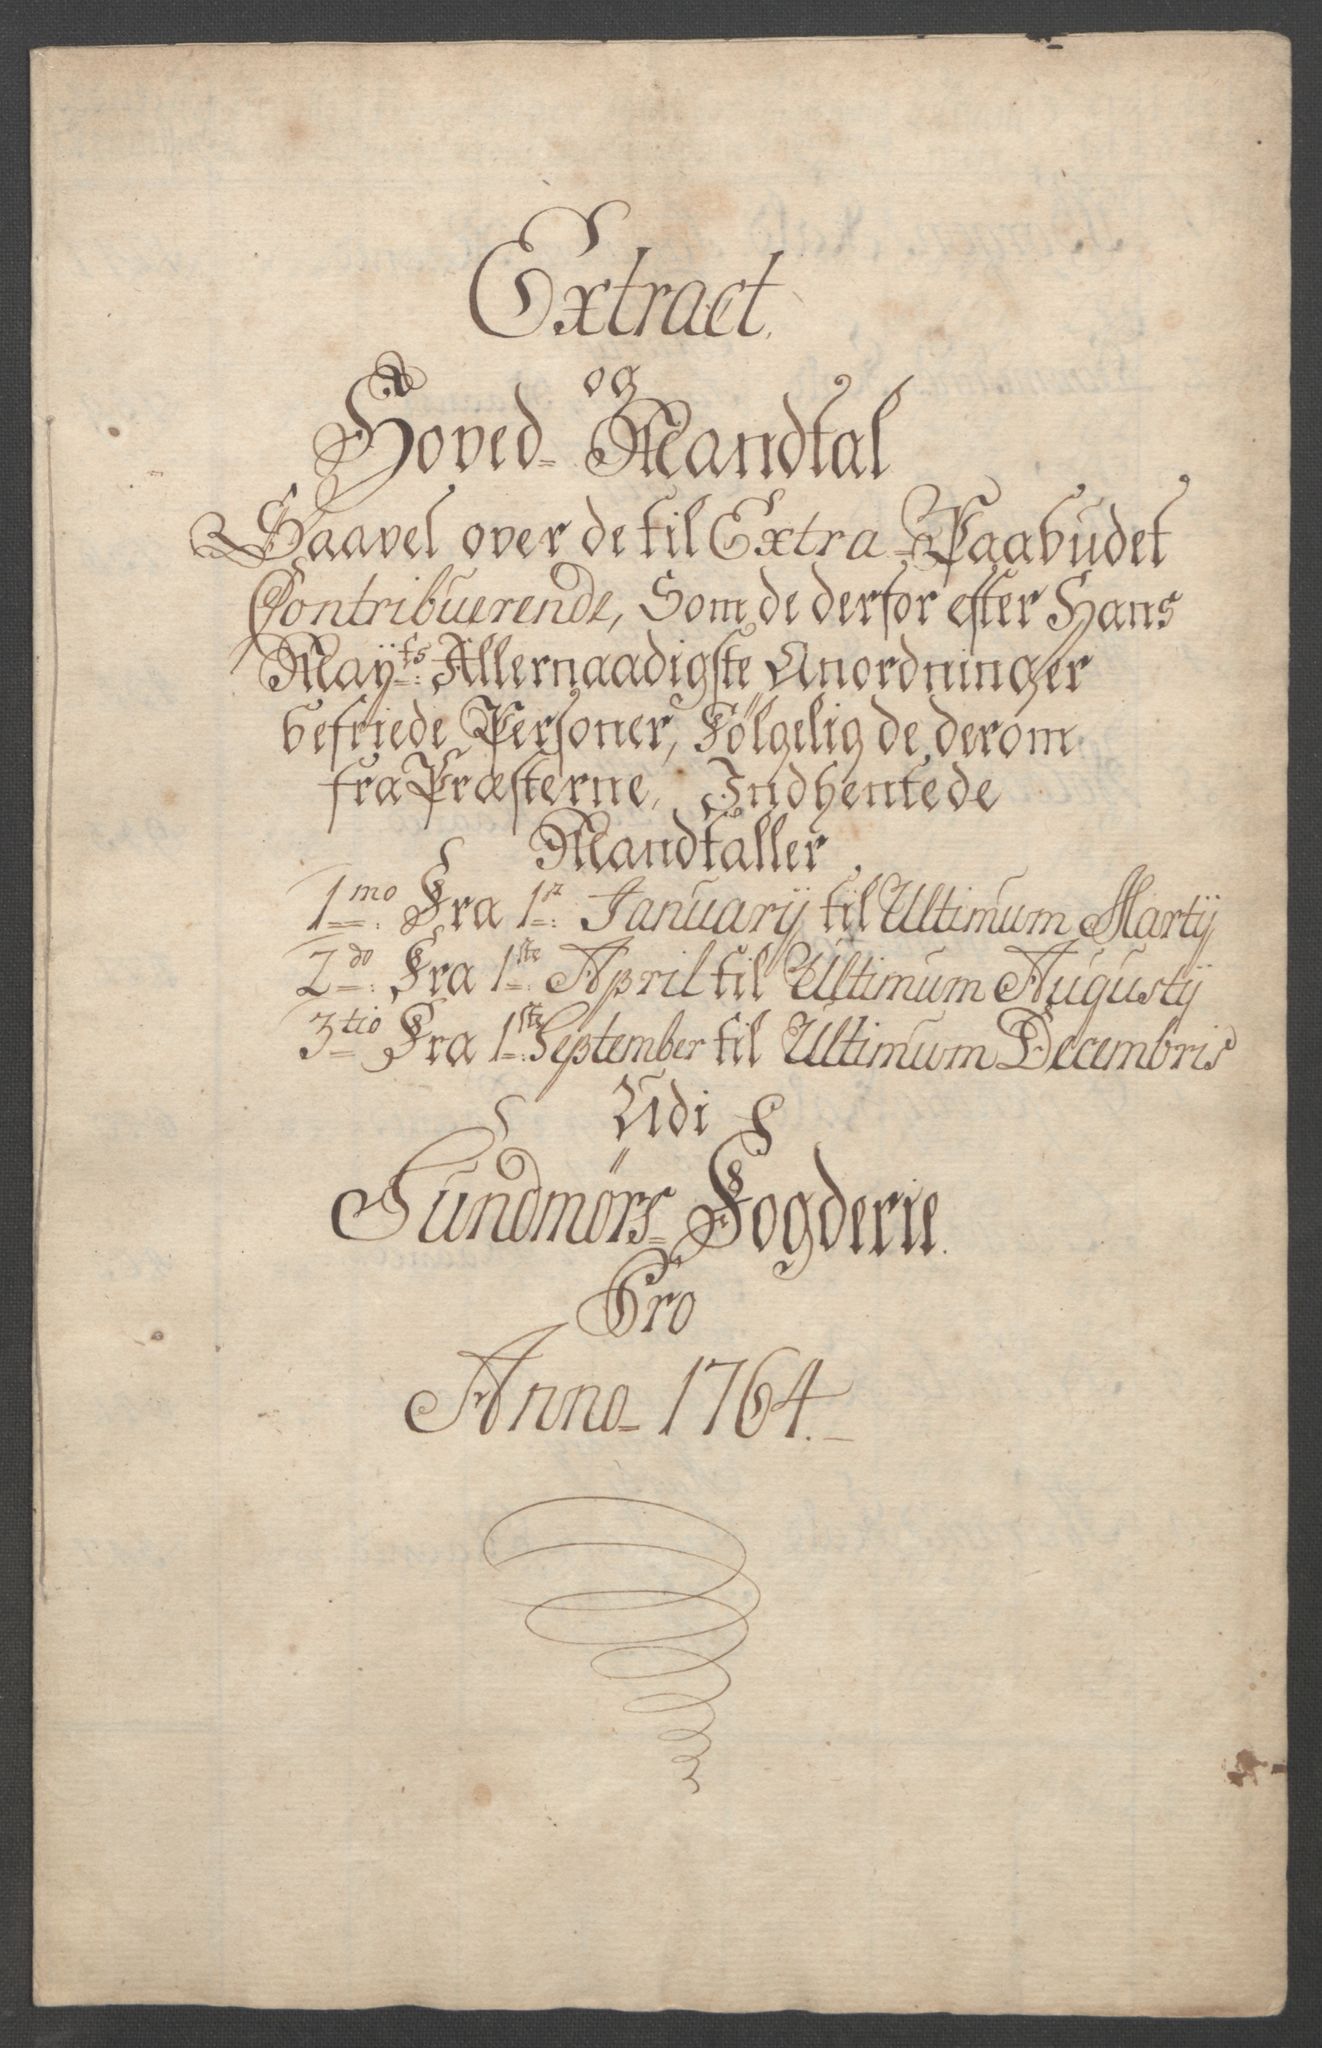 Extract
og
Hoved-Mandtal
Saavel over de til Extra Paabudet
Contribuerende, Som de derfor efter Hans
Mayts: Allernaadigste Anordninger
befriede Personer, Følgelig de derom
fra Præsterne, Indhentede
Mandtaller
1mo: Fra 1st: Januarij til Ultimum Martij
2do: Fra 1ste: April til Ultimum Augustij
3tio Fra 1ste: September til Ultimum Decembris
Udi
Sundmørs-Fogderie.
Pro
Anno-1764.